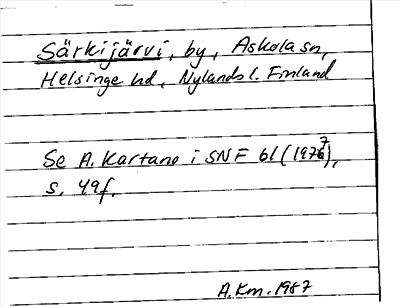 Särkijärvi, by, Askola sn,
Helsinge hd, Nylands l. Finland
Se A. Kartano i SNF 61 (1977),
s. 49f.
A.Km. 1987